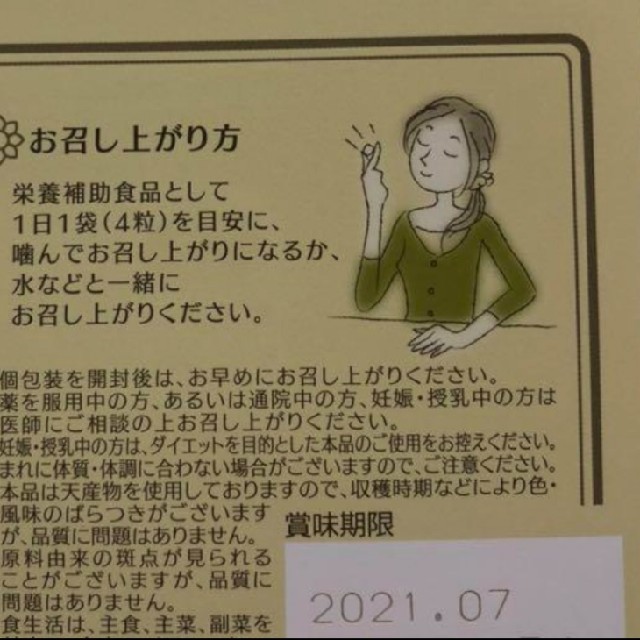 お召し上がり方
栄養補助食品として
1日1袋(4粒)を目安に、
噛んでお召し上がりになるか、
水などと一緒に
お召し上がりください。
個包装を開封後は、お早めにお召し上がりください。
薬を服用中の方、あるいは通院中の方、妊娠・授乳中の方は
医師にご相談の上お召し上がりください。
妊娠・授乳中の方は、ダイエットを目的とした本品のご使用をお控えください。
まれに体質・体調に合わない場合がございますので、ご注意ください。
本品は天産物を使用しておりますので、収穫時期などにより色・
風味のばらつきがございます
が、品質に問題はありません。
原料由来の斑点が見られる
ことがございますが、品質に
問題はありません。
食生活は、主食、主菜、副菜を
賞味期限
2021.07